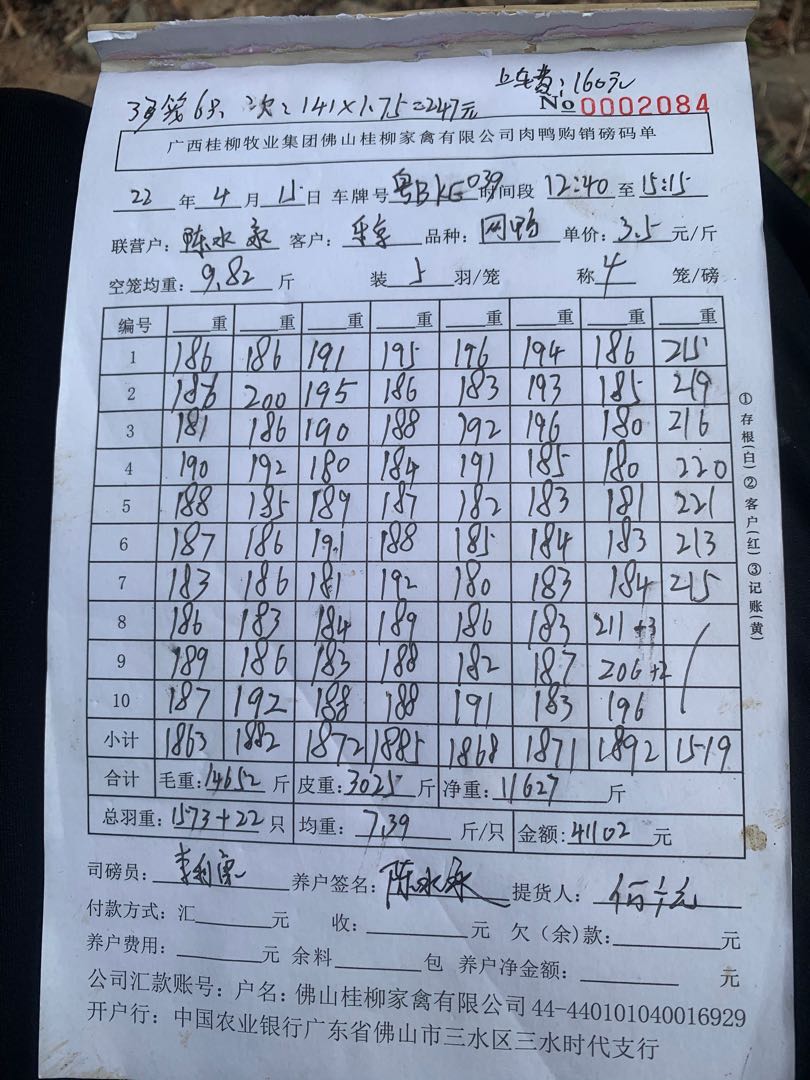 上车费:160元
弱笼6只, 次:141×1.75=247元
No 0002084
广西桂柳牧业集团佛山桂柳家禽有限公司肉鸭购销磅码单
22 年 4 月 15 日 车牌号 粤BKG039 时间段 12:40 至 15:15
联营户: 陈水永 客户: 品种: 网鸭 单价: 3.5 元/斤
空笼均重: 9.82 斤 装 5 羽/笼 称 4 笼/磅
编号 重 重 重 重 重 重 重 重
1 186 186 191 195 196 194 186 215
2 186 200 195 186 183 193 185 219
3 181 186 190 188 192 196 180 216
4 190 192 180 184 191 185 180 220
5 188 185 189 187 182 183 181 221
6 187 186 191 188 185 184 183 213
7 183 186 181 192 180 183 184 215
8 186 183 184 189 186 183 211+3
9 189 186 183 188 182 187 206+2
10 187 192 188 188 191 183 196
小计 1863 1882 1872 1885 1868 1871 1892 1519
合计 毛重: 14652 斤 皮重: 3025 斤 净重: 11627 斤
总羽重: 1573+22 只 均重: 7.39 斤/只 金额: 41102 元
司磅员: 养户签名: 陈水永 提货人:
付款方式: 汇 元 收: 元 欠(余)款: 元
养户费用: 元 余料 包 养户净金额: 元
公司汇款账号: 户名: 佛山桂柳家禽有限公司 44-440101040016929
开户行: 中国农业银行广东省佛山市三水区三水时代支行
①存根(白)②客户(红)③记账(黄)